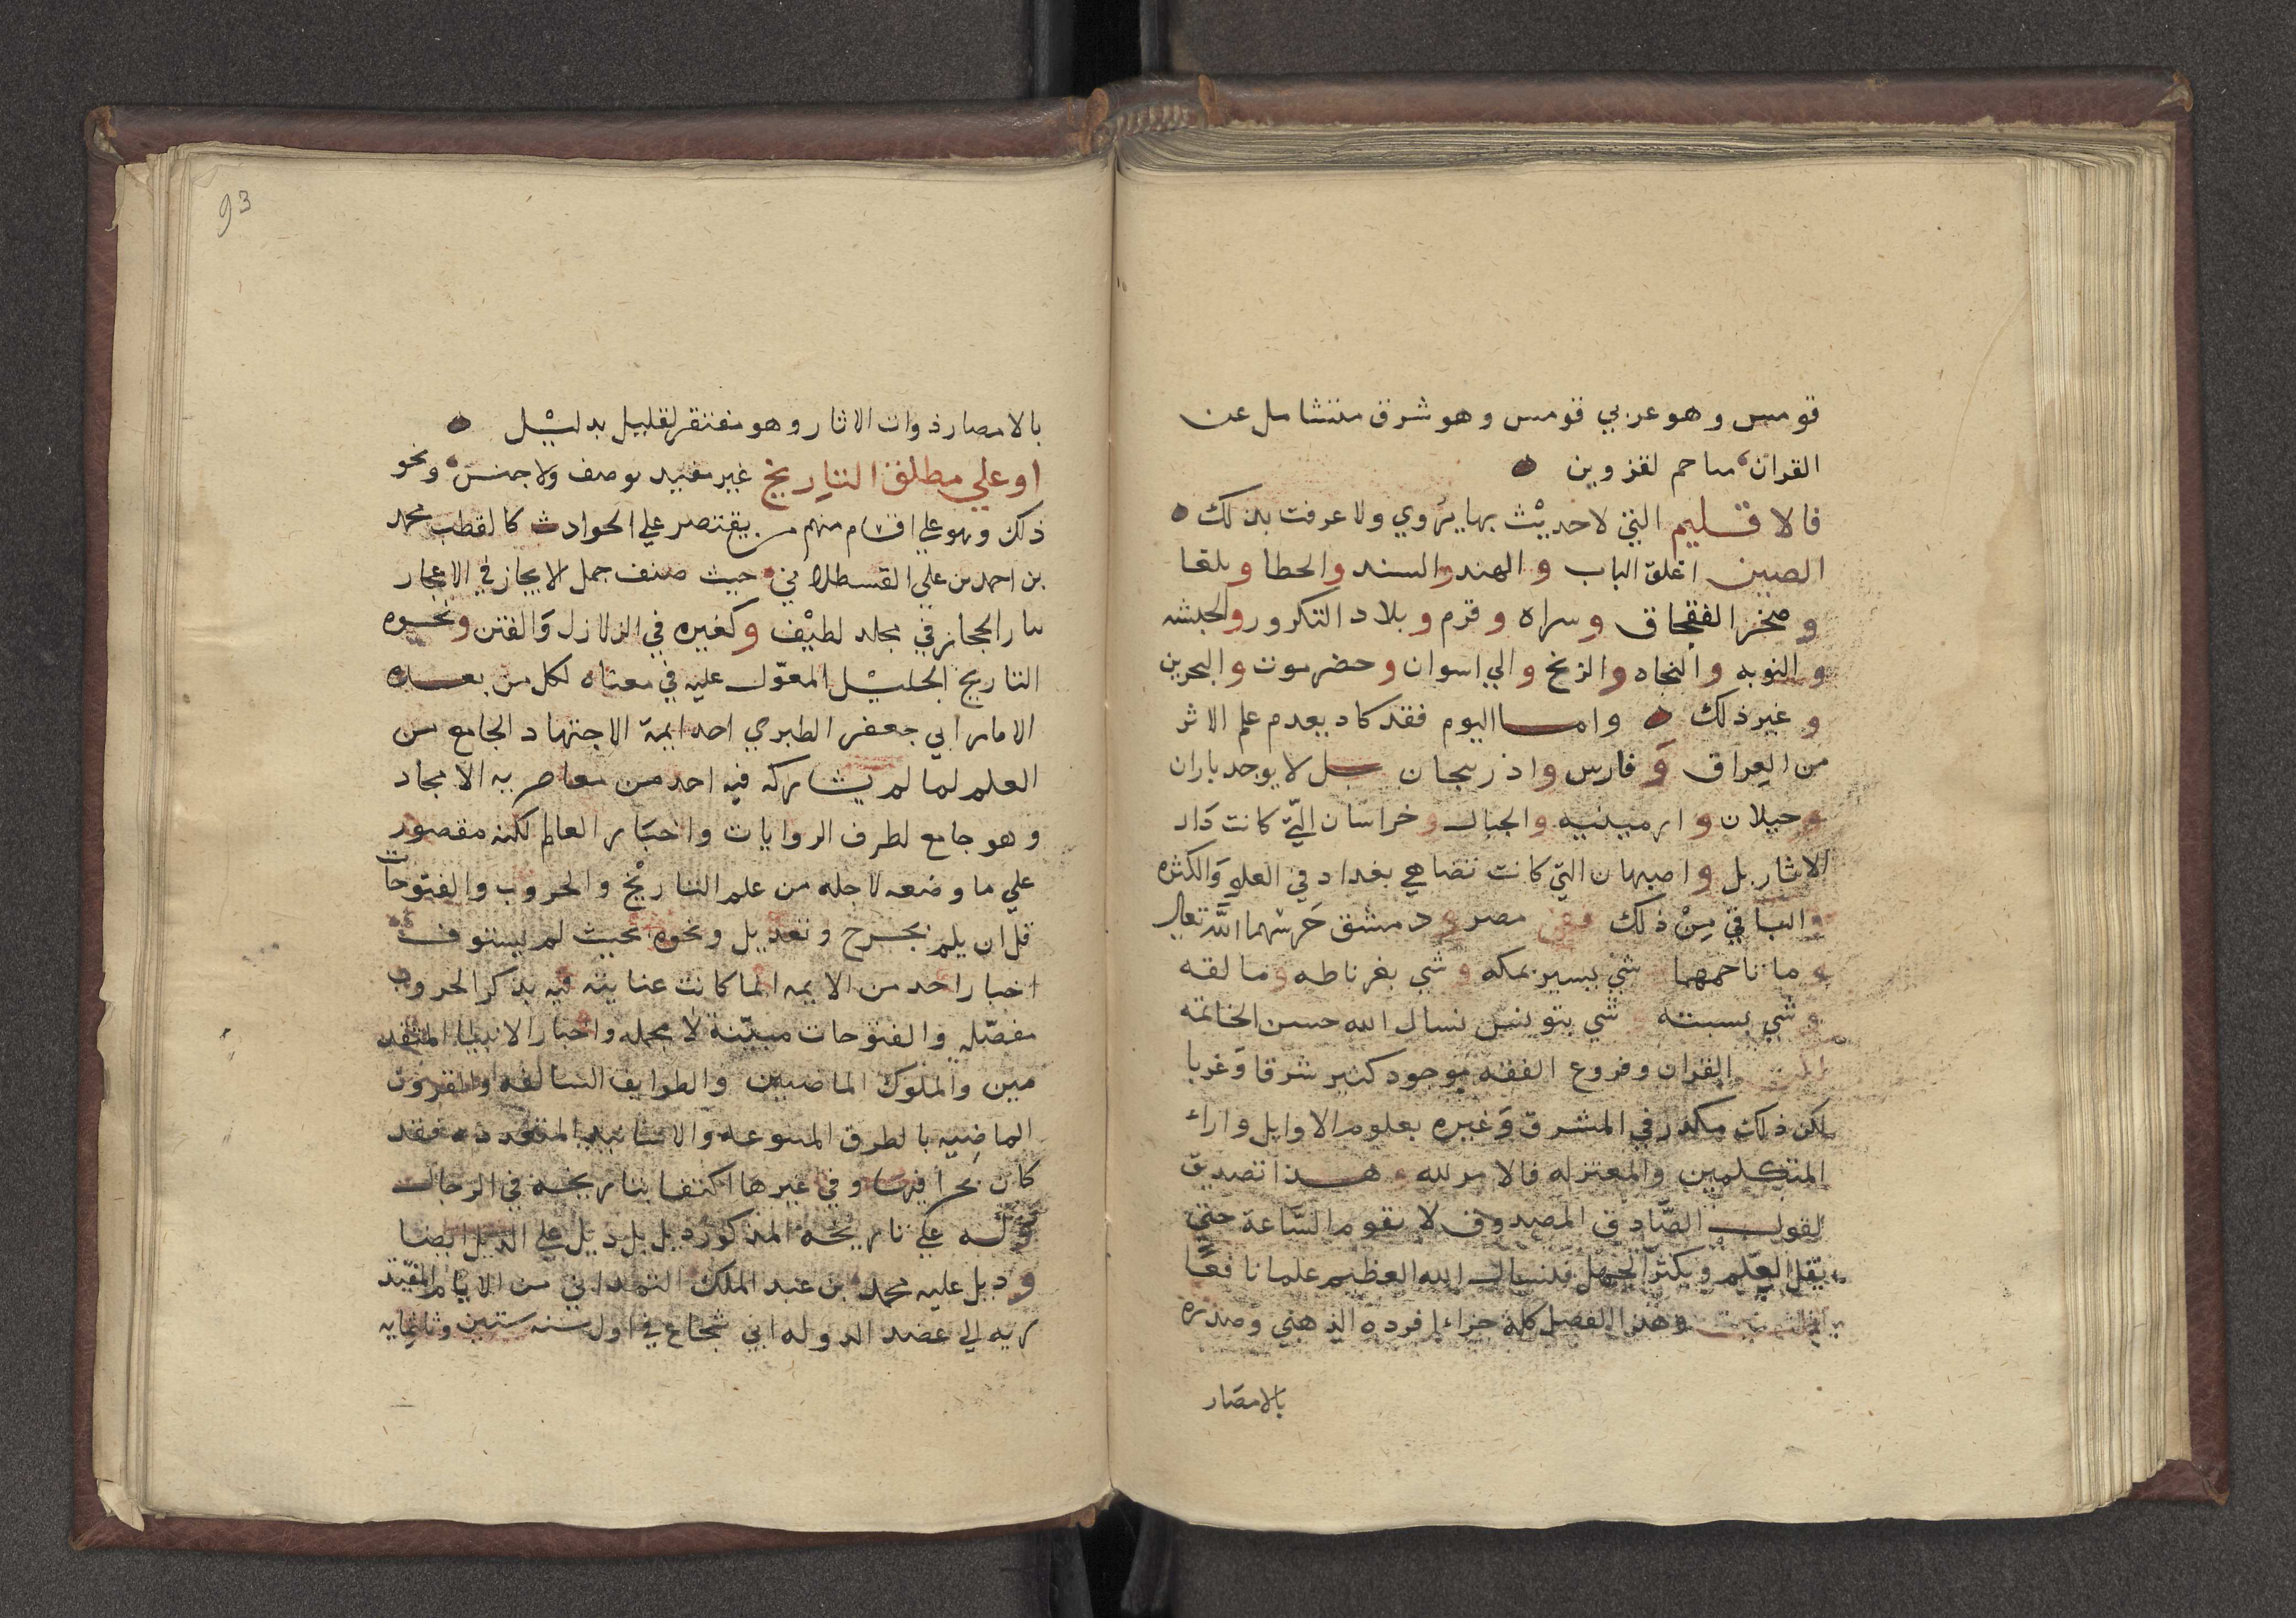 قومس وهو عربي قومس وهو شرق متشامل عن
القران مراحم لقزوين
فالاقليم التي لا حديث بها يروي ولا عرفت بذلك
الصين اغلق الباب والهند والسند والخطا وبلغا
وصخر القفجاق وسراه وقرم وبلاد التكرور والحبشه
والنوبه والنجاه والزنج والي اسوان وحضرموت والبحرين
وغير ذلك واما اليوم فقد كاد يعدم علم الاثر
من العراق وفارس واذربيجان بل لا يوجد باران
وجيلان وارمينيه والجبال وخراسان التي كانت دار
الاثار بل واصبهان التي كانت تضاهي بغداد في العلو والكثره
والباقي من ذلك ففي مصر ودمشق حرسهما الله تعالي
وما تاخمهما وشي يسير بمكه وشي بغرناطه ومالقه
وشي بسبته وشي بتونس نسال الله حسن الخاتمه
القران وفروع الفقه موجود كثير شرقا وغربا
لكن ذلك مكدر في المشرق وغيره بعلوم الاوايل واراء
المتكلمين والمعتزله فالامر لله وهذا تصديق
لقول الصادق المصدوق لا يقوم الساعة حتي
يقل العلم ويكثر الجهل فنسال الله العظيم علما نافعا
وهذا الفصل كله جزا افرده الذهبي وصدره
بالامصار
93
بالامصار ذوات الاثار وهو مفتقر لقليل بدليل
او علي مطلق التاريخ غير مقيد بوصف ولا جنس ونحو
ذلك وهو علي اقسام منهم من يقتصر علي الحوادث كالقطب محمد
بن احمد بن علي القسطلاني حيث صنف جمل الايجاز في الاعجاز
بنار الحجاز في مجلد لطيف وكغيره في الزلازل والفتن ونحوه
التاريخ الجليل المعول عليه في معناه لكل من بعده
الامام ابي جعفر الطبري احد ايمة الاجتهاد الجامع من
العلم لما لم يشاركه فيه احد من معاصريه الامجاد
وهو جامع لطرف الروايات واخبار العالم لكنه مقصور
علي ما وضعه لاجله من علم التاريخ والحروب والفتوحات
قل ان يلم بجرح وتعديل ونحوه بحيث لم يستوف
اخبار احد من الايمه انما كانت عنايته فيه بذكر الحروب
مفصله والفتوحات مبينة لا مجمله واخبار الانبيا المتقد
مين والملوك الماضيين والطوايف السالفه والقرون
الماضيه بالطرق المتنوعه والاسانيد المتعدده فقد
كان بحرا فيها وفي غيرها اكتفا بتاريخه في الرجال
وله علي تاريخه المذكور ذيل بل ذيل علي الذيل ايضا
وذيل عليه محمد بن عبد الملك الهمداني من الايام المقتد
ريه الي عضد الدوله ابي شجاع في اول سنه ستين وثلثمايه